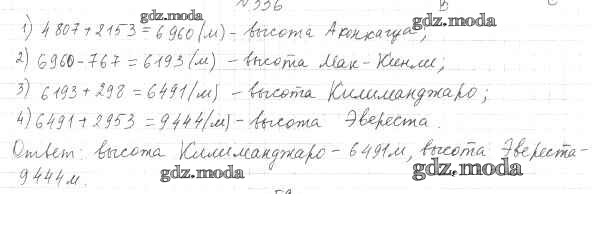 №336
В
С
gdz.moda
gdz.moda
1) 4807+2153=6960(м)-высота Аконкагуа;
2) 6960-767=6193(м) -высота Мак-Кинли;
3) 6193+298=6491(м) -высота Килиманджаро;
4) 6491+2953=9444(м)-высота Эвереста.
Ответ: высота Килиманджаро-6491м, высота Эвереста-
9444м.
gdz.moda
gdz.moda